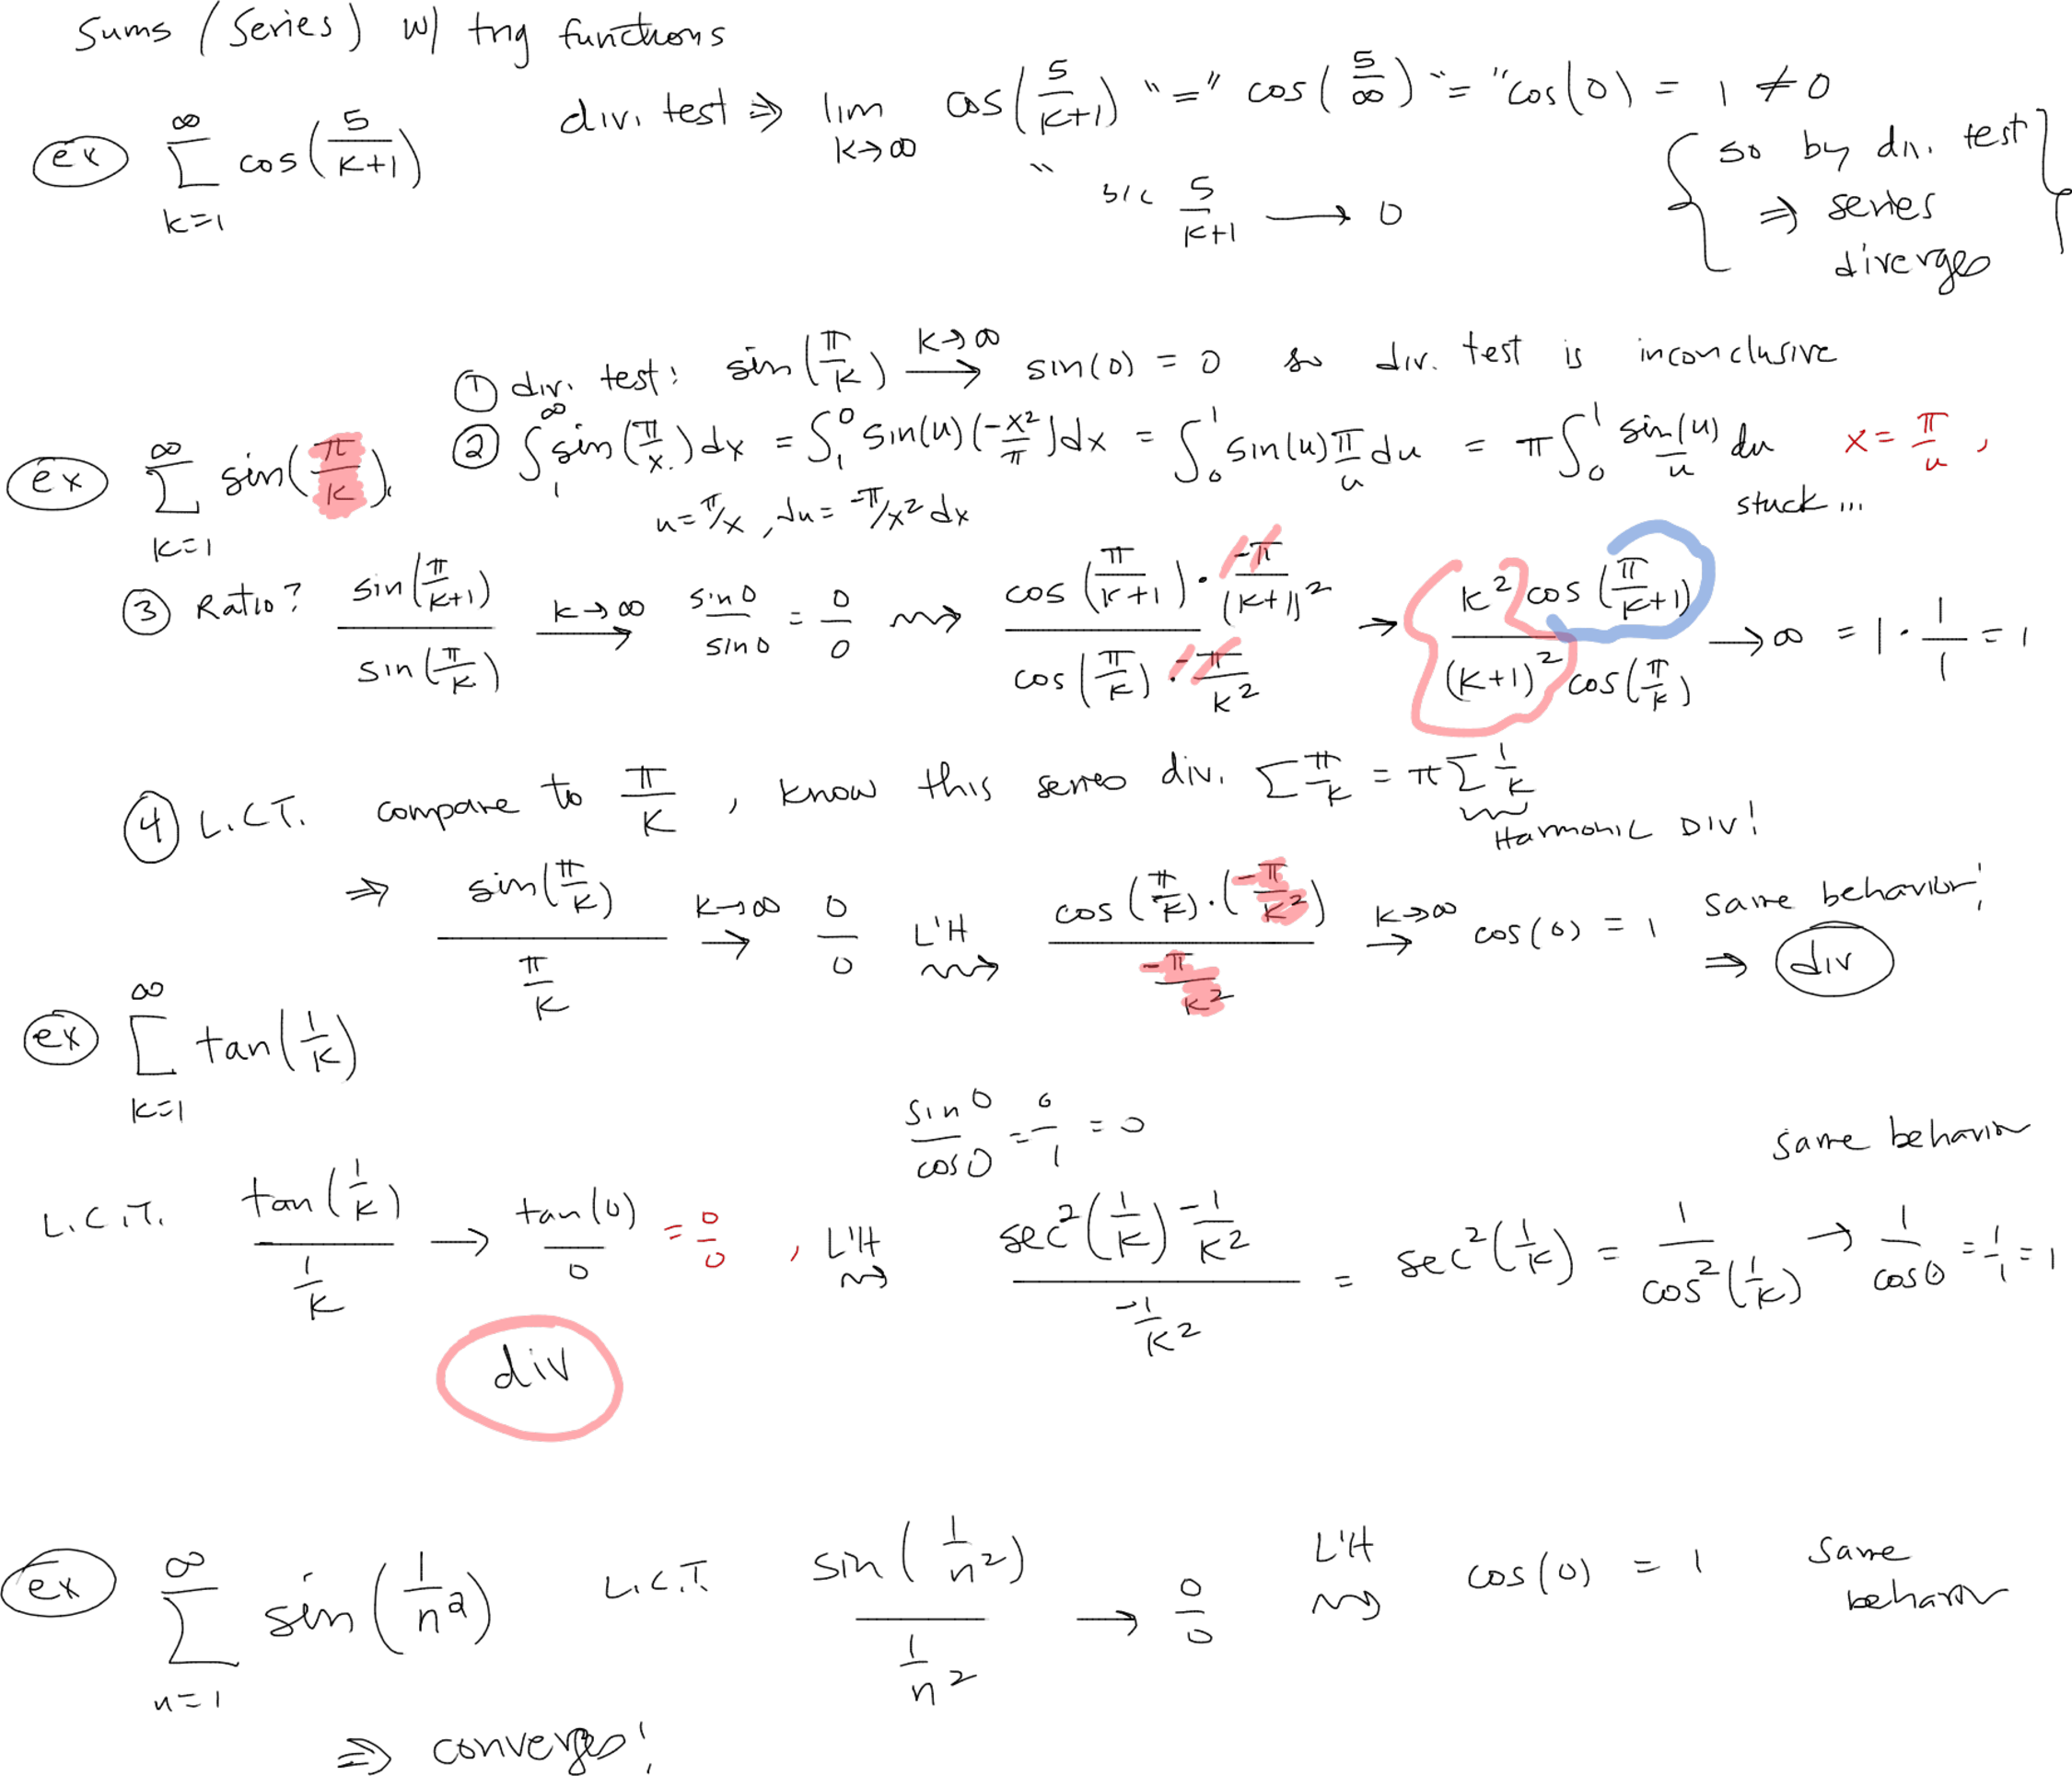 Sums (Series) w/ trig functions
ex ∑_{k=1}^{∞} cos(5/(k+1)) div. test ⇒ lim_{k→∞} cos(5/(k+1)) "=" cos(5/∞) "=" cos(0) = 1 ≠ 0
" b/c 5/(k+1) → 0
{ so by div. test
⇒ series
diverges }
① div. test: sin(π/k) →^{k→∞} sin(0) = 0 so div. test is inconclusive
ex ∑_{k=1}^{∞} sin(π/k). ② ∫_1^∞ sin(π/x) dx = ∫_1^0 sin(u)(-x²/π)dx = ∫_0^1 sin(u) π/u du = π∫_0^1 sin(u)/u du x = π/u,
u = π/x, du = -π/x² dx stuck...
③ Ratio? sin(π/(k+1)) / sin(π/k) →^{k→∞} sin0/sin0 = 0/0 ⇝ cos(π/(k+1))·-π/(k+1)² / cos(π/k)·-π/k² → k² cos(π/(k+1)) / (k+1)² cos(π/k) → ∞ = 1·1/1 = 1
④ L.C.T. compare to π/k, know this series div. ∑π/k = π∑1/k
Harmonic DIV!
⇒ sin(π/k) / (π/k) →^{k→∞} 0/0 L'H ⇝ cos(π/k)·(-π/k²) / (-π/k²) →^{k→∞} cos(0) = 1 same behavior!
⇒ div
ex ∑_{k=1}^{∞} tan(1/k)
sin0/cos0 = 0/1 = 0
same behavior
L.C.T. tan(1/k) / (1/k) → tan(0)/0 = 0/0, L'H ⇝ sec²(1/k) -1/k² / (-1/k²) = sec²(1/k) = 1/cos²(1/k) → 1/cos0 = 1/1 = 1
div
ex ∑_{n=1}^{∞} sin(1/n²) L.C.T. sin(1/n²) / (1/n²) → 0/0 L'H ⇝ cos(0) = 1 same
behavior
⇒ converges!